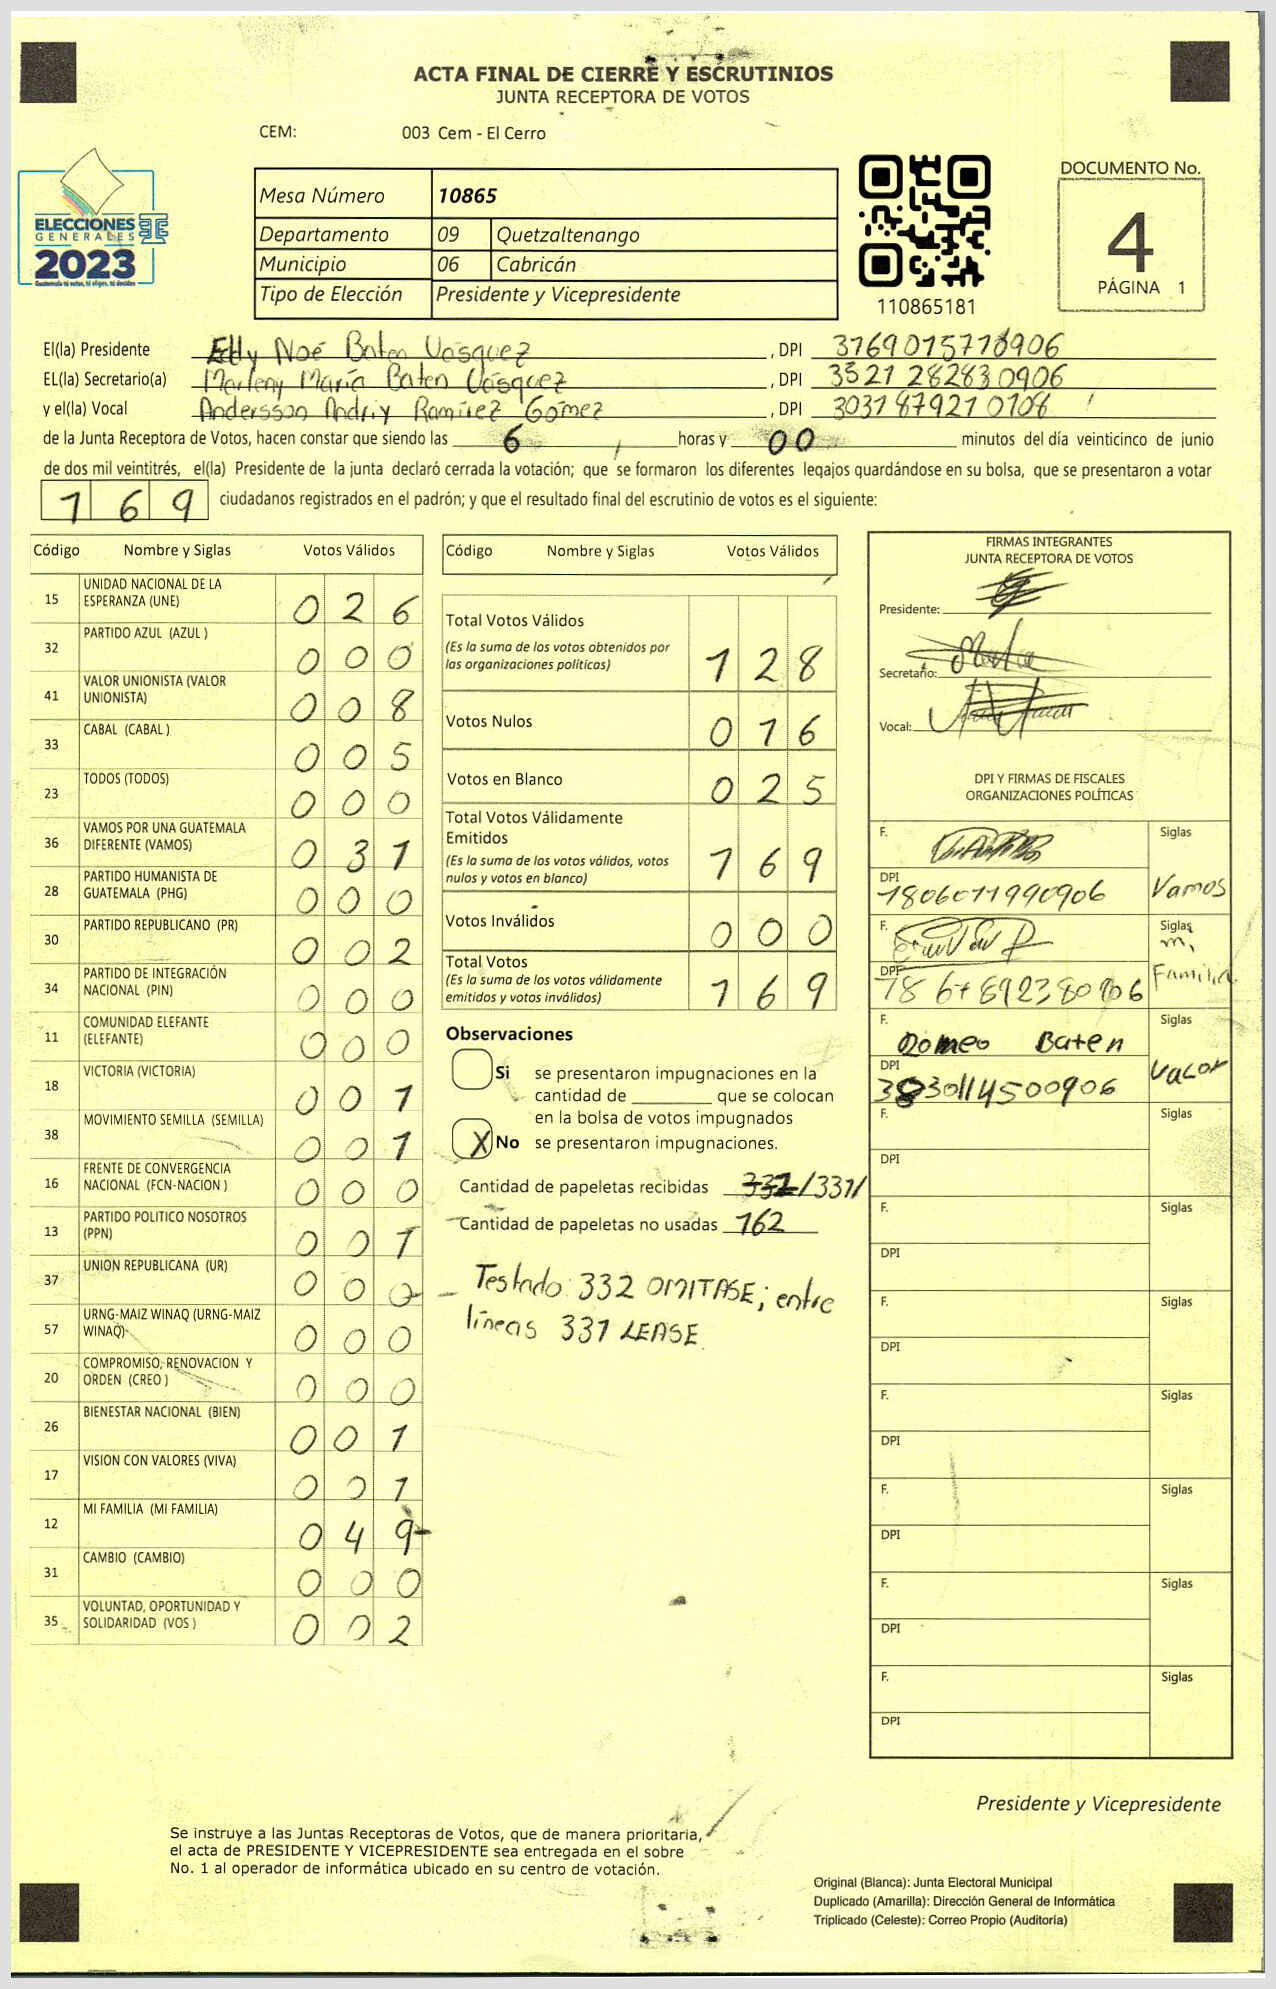 ACTA FINAL DE CIERRE Y ESCRUTINIOS
JUNTA RECEPTORA DE VOTOS
CEM: 003 Cem - El Cerro
ELECCIONES
GENERALES
2023
Guatemala tú votas, tú eliges, tú decides
Mesa Número 10865
Departamento 09 Quetzaltenango
Municipio 06 Cabricán
Tipo de Elección Presidente y Vicepresidente
110865181
DOCUMENTO No.
4
PÁGINA 1
El(la) Presidente Elly Noé Baten Vásquez, DPI 3769015770906
EL(la) Secretario(a) Marleny María Baten Vásquez, DPI 3521282830906
y el(la) Vocal Andersson Andriy Ramírez Gómez, DPI 3031879210108
de la Junta Receptora de Votos, hacen constar que siendo las 6 horas y 00 minutos del día veinticinco de junio
de dos mil veintitrés, el(la) Presidente de la junta declaró cerrada la votación; que se formaron los diferentes legajos guardándose en su bolsa, que se presentaron a votar
169 ciudadanos registrados en el padrón; y que el resultado final del escrutinio de votos es el siguiente:
Código Nombre y Siglas Votos Válidos
15 UNIDAD NACIONAL DE LA ESPERANZA (UNE) 026
32 PARTIDO AZUL (AZUL ) 000
41 VALOR UNIONISTA (VALOR UNIONISTA) 008
33 CABAL (CABAL ) 005
23 TODOS (TODOS) 000
36 VAMOS POR UNA GUATEMALA DIFERENTE (VAMOS) 031
28 PARTIDO HUMANISTA DE GUATEMALA (PHG) 000
30 PARTIDO REPUBLICANO (PR) 002
34 PARTIDO DE INTEGRACIÓN NACIONAL (PIN) 000
11 COMUNIDAD ELEFANTE (ELEFANTE) 000
18 VICTORIA (VICTORIA) 001
38 MOVIMIENTO SEMILLA (SEMILLA) 001
16 FRENTE DE CONVERGENCIA NACIONAL (FCN-NACION ) 000
13 PARTIDO POLITICO NOSOTROS (PPN) 001
37 UNION REPUBLICANA (UR) 000
57 URNG-MAIZ WINAQ (URNG-MAIZ WINAQ) 000
20 COMPROMISO, RENOVACION Y ORDEN (CREO ) 000
26 BIENESTAR NACIONAL (BIEN) 001
17 VISION CON VALORES (VIVA) 001
12 MI FAMILIA (MI FAMILIA) 049
31 CAMBIO (CAMBIO) 000
35 VOLUNTAD, OPORTUNIDAD Y SOLIDARIDAD (VOS ) 002
Código Nombre y Siglas Votos Válidos
Total Votos Válidos 128
(Es la suma de los votos obtenidos por
las organizaciones políticas)
Votos Nulos 016
Votos en Blanco 025
Total Votos Válidamente
Emitidos 169
(Es la suma de los votos válidos, votos
nulos y votos en blanco)
Votos Inválidos 000
Total Votos 169
(Es la suma de los votos válidamente
emitidos y votos inválidos)
Observaciones
Si se presentaron impugnaciones en la
cantidad de ________ que se colocan
en la bolsa de votos impugnados
X No se presentaron impugnaciones.
Cantidad de papeletas recibidas 332/331/
Cantidad de papeletas no usadas 162
Testado: 332 OMITASE; entre
líneas 331 LEASE.
FIRMAS INTEGRANTES
JUNTA RECEPTORA DE VOTOS
Presidente:
Secretario:
Vocal:
DPI Y FIRMAS DE FISCALES
ORGANIZACIONES POLÍTICAS
F. Siglas
DPI 1806011990906 Vamos
F. Siglas
DPI mi Familia
F. Romeo Baten Siglas
DPI 3830114500906 Valor
F. Siglas
DPI
F. Siglas
DPI
F. Siglas
DPI
F. Siglas
DPI
F. Siglas
DPI
F. Siglas
DPI
F. Siglas
DPI
Presidente y Vicepresidente
Se instruye a las Juntas Receptoras de Votos, que de manera prioritaria,
el acta de PRESIDENTE Y VICEPRESIDENTE sea entregada en el sobre
No. 1 al operador de informática ubicado en su centro de votación.
Original (Blanca): Junta Electoral Municipal
Duplicado (Amarilla): Dirección General de Informática
Triplicado (Celeste): Correo Propio (Auditoría)